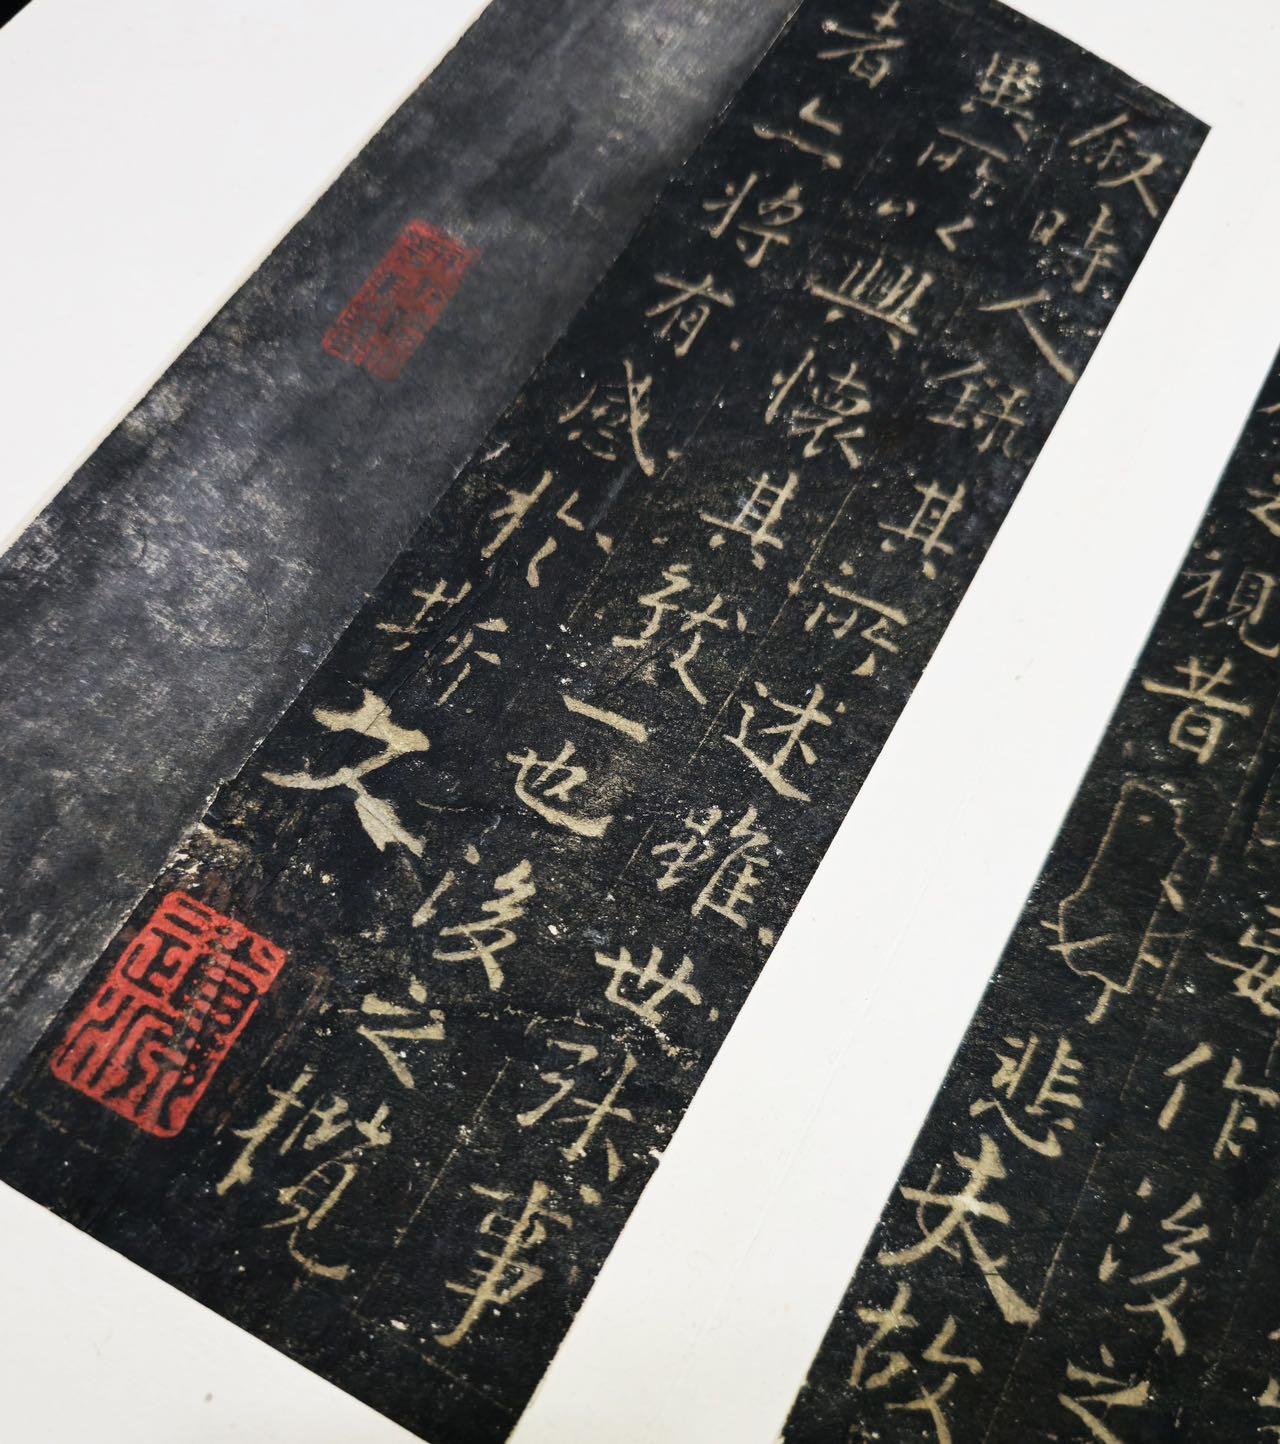 妄作後之
之視昔悲夫故
叙時人録其所述雖世殊事
異所以興懷其致一也後之攬
者亦將有感於斯文